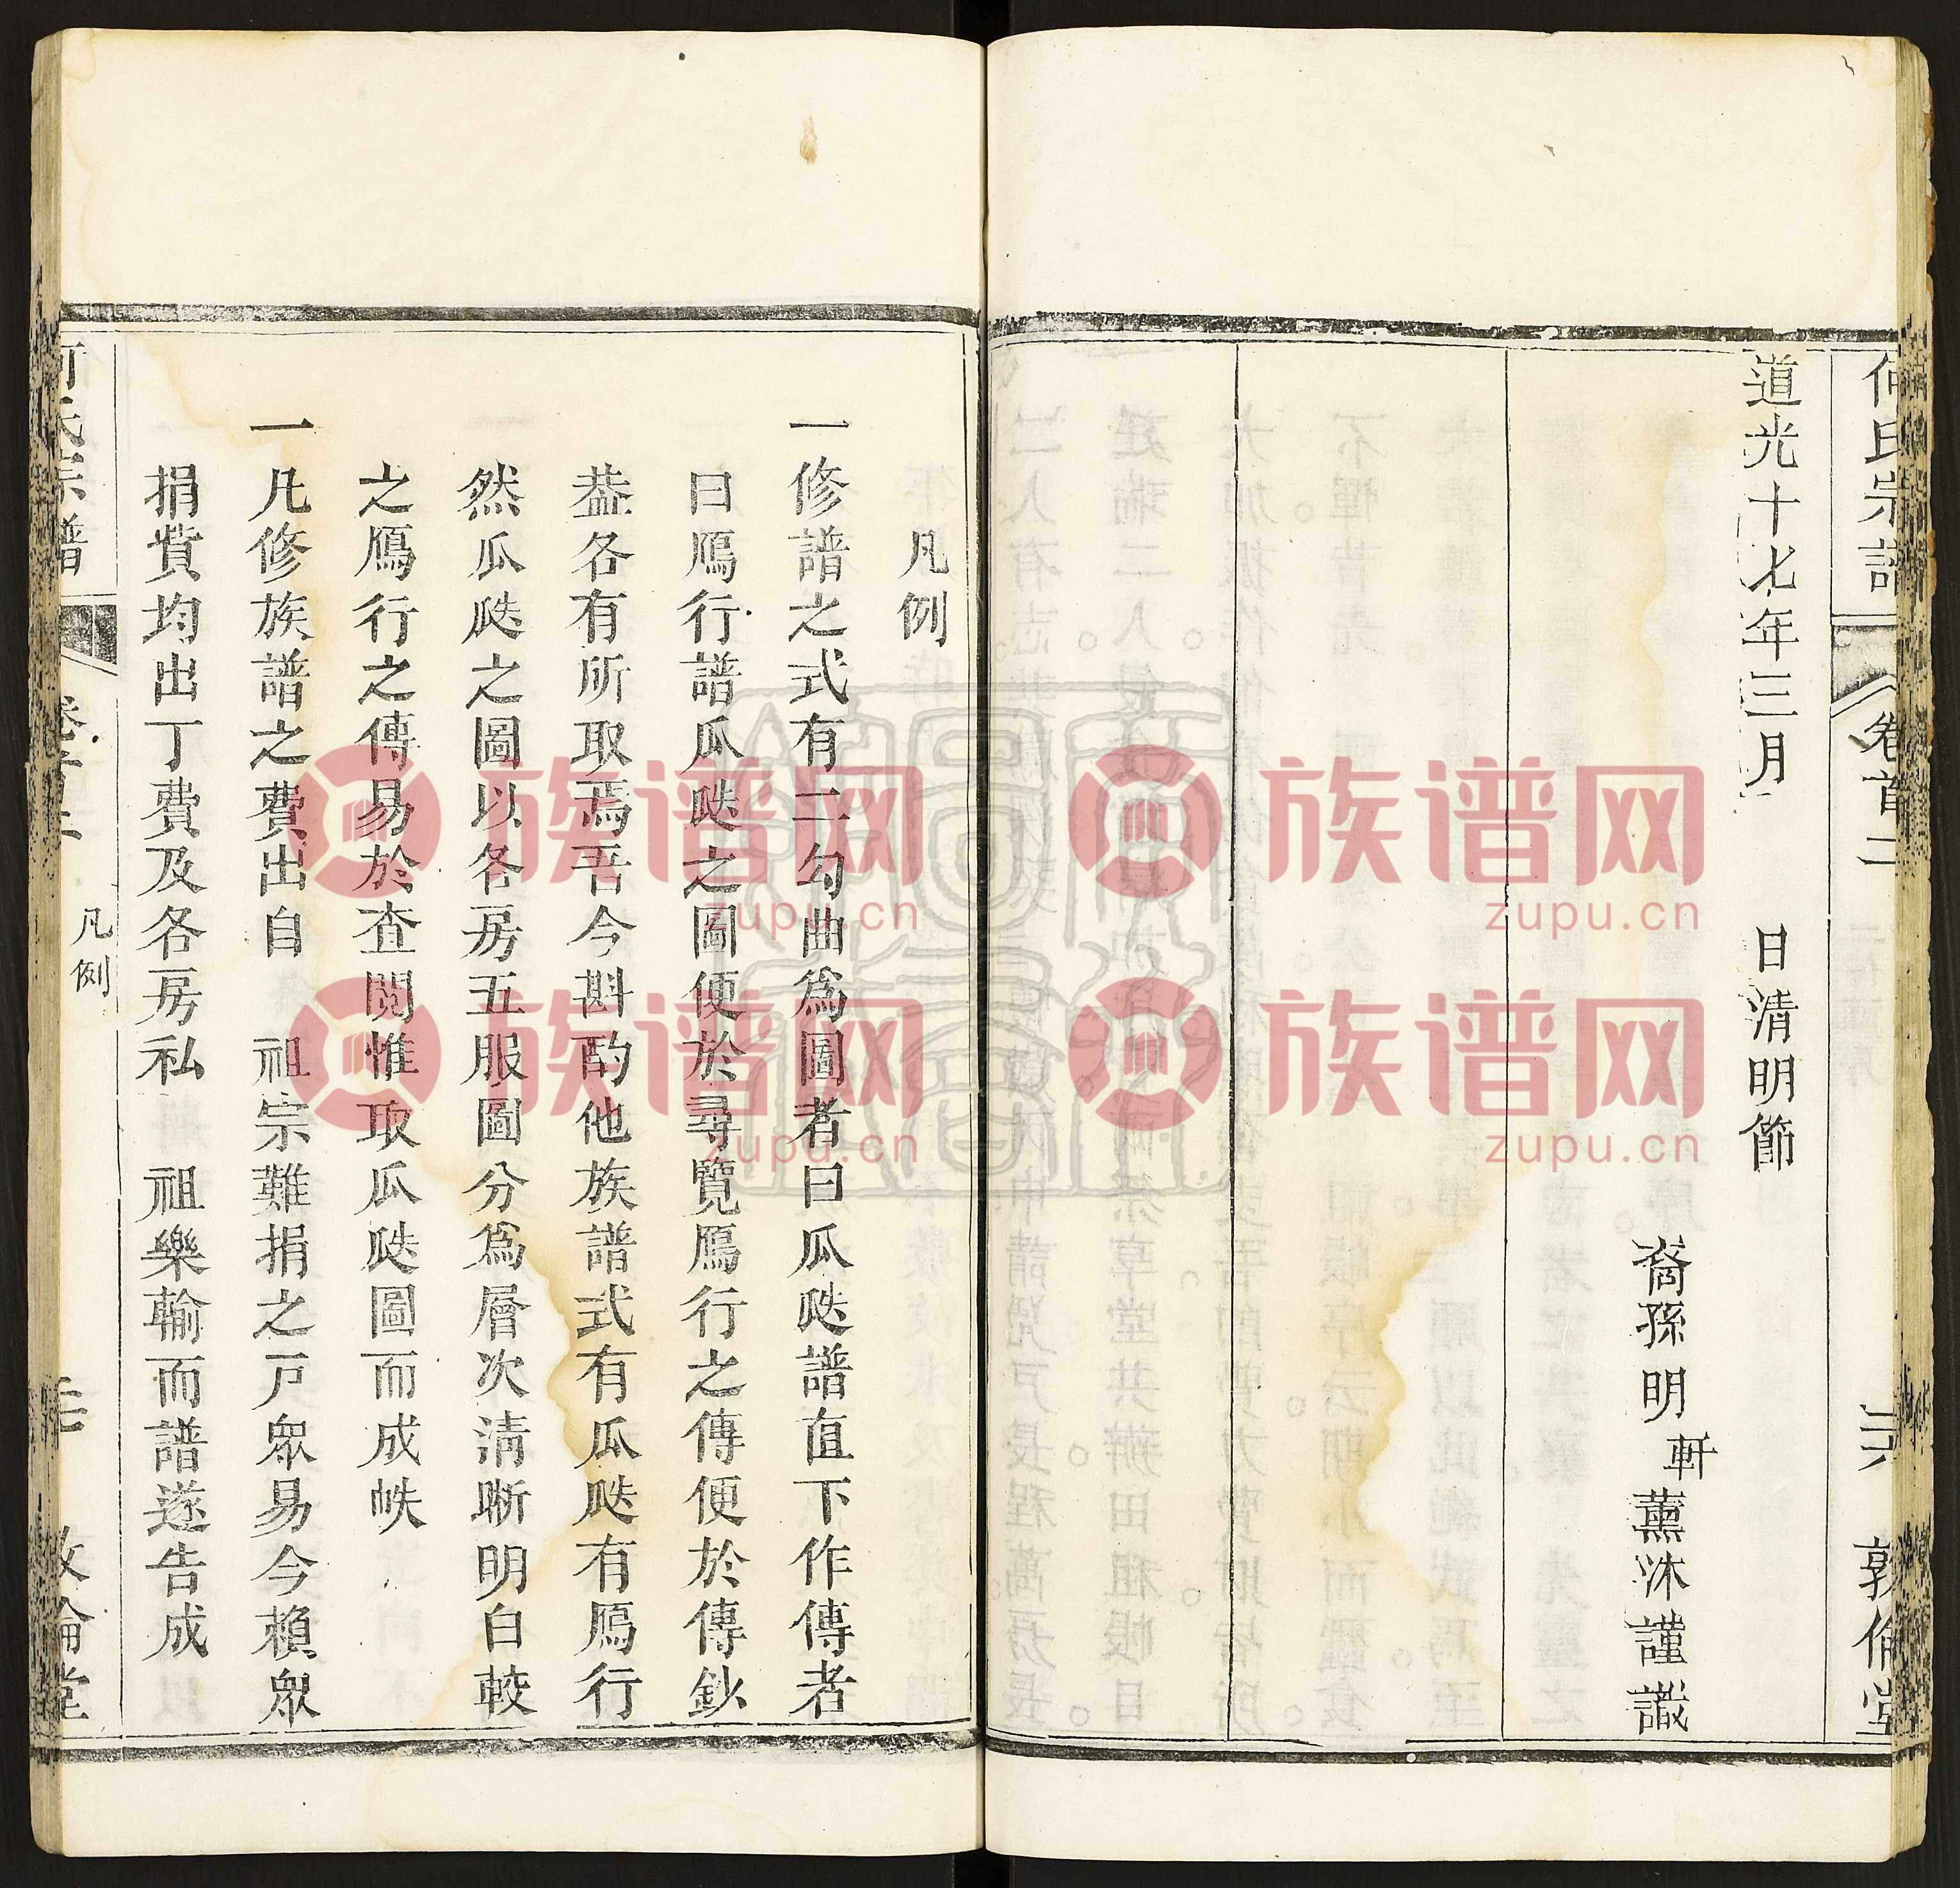 何氏宗譜
卷首二
六
敦倫堂
道光十七年三月 日清明節
裔孫明軒薰沐謹識
凡例
一修譜之式有二勾曲爲圖者曰瓜瓞譜直下作傳者
曰鴈行譜瓜瓞之圖便於尋覽鴈行之傳便於傳鈔
葢各有所取焉吾今斟酌他族譜式有瓜瓞有鴈行
然瓜瓞之圖以各房五服圖分爲層次清晰明白較
之鴈行之傳易於查閱惟取瓜瓞圖而成帙
一凡修族譜之費出自 祖宗難捐之戸衆易今賴衆
捐貲均出丁費及各房私 祖樂輸而譜遂告成
氏宗譜
凡例
倫堂
族谱网
zupu.cn
族谱网
zupu.cn
族谱网
zupu.cn
族谱网
zupu.cn